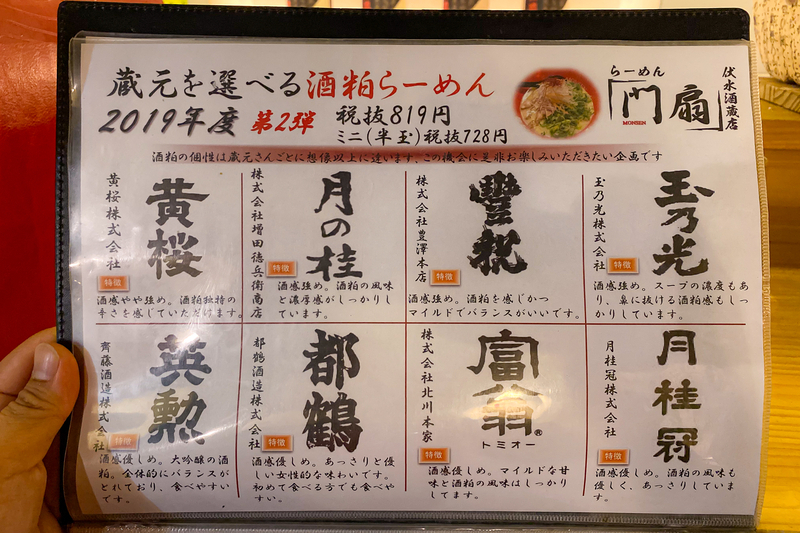 蔵元を選べる酒粕らーめん
2019年度 第2弾 税抜819円
ミニ(半玉)税抜728円
らーめん
門扇
MONSEN
伏水酒蔵店
酒粕の個性は蔵元さんごとに想像以上に違います。この機会に是非お楽しみいただきたい企画です
黄桜株式会社
黄桜
特徴
酒感やや強め。酒粕独特の
辛さを感じていただけます。
株式会社増田德兵衛商店
月の桂
特徴
酒感強め。酒粕の風味
と濃厚感がしっかりし
ています。
株式会社豊澤本店
豊祝
特徴
酒感強め。酒粕を感じかつ
マイルドでバランスがいいです。
玉乃光株式会社
玉乃光
特徴
酒感強め。スープの濃度もあ
り、鼻に抜ける酒粕感もしっ
かりしています。
齊藤酒造株式会社
英勲
特徴
酒感優しめ。大吟醸の酒
粕。全体的にバランスが
とれており、食べやすい
です。
都鶴酒造株式会社
都鶴
特徴
酒感優しめ。あっさりと優
しい女性的な味わいです。
初めて食べる方でも食べや
すい。
株式会社北川本家
富翁
®
トミオー
特徴
酒感優しめ。マイルドな甘
味と酒粕の風味はしっかり
してます。
月桂冠株式会社
月桂冠
特徴
酒感優しめ。酒粕の風味も
優しく、あっさりしていま
す。